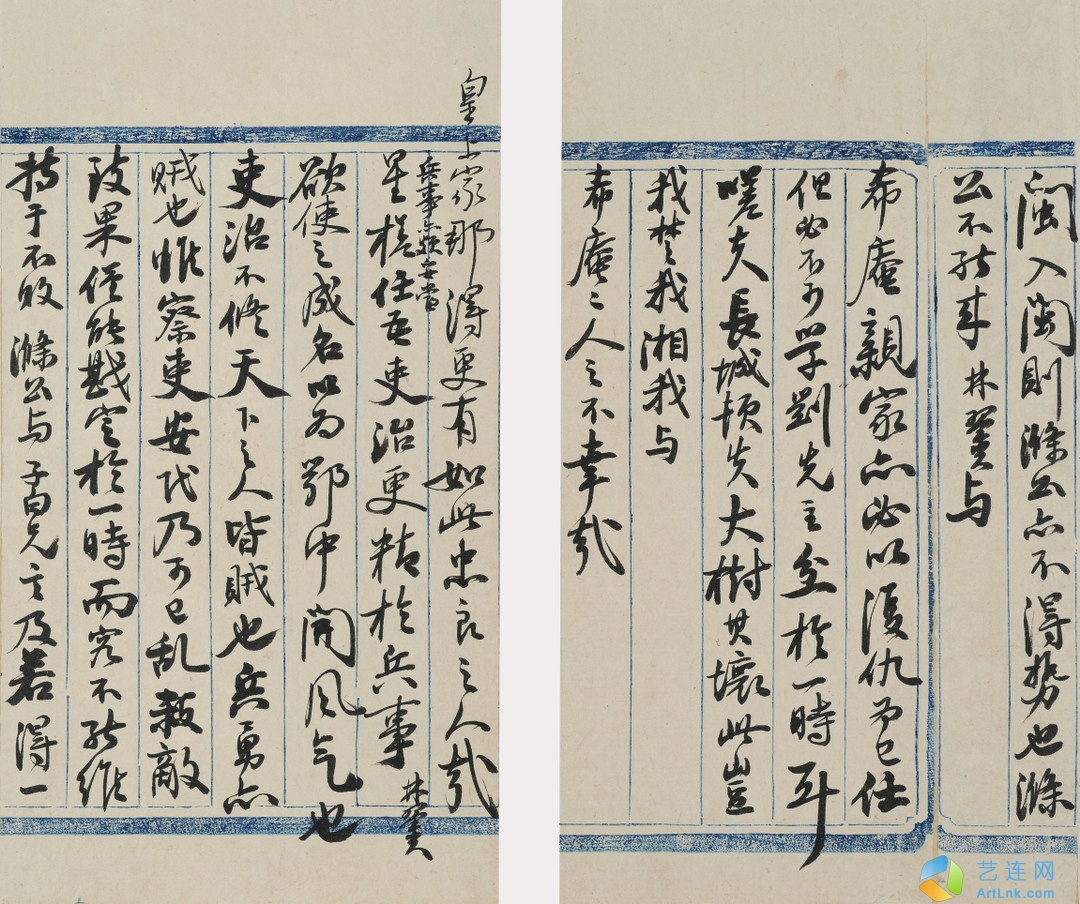 閩入閩則滌公亦不得势也滌
公不能来林翼与
希庵親家亦必以復仇为己任
但必不可学劉先主忿於一時耳
嗟夫長城頓失大樹其壞此豈
我楚我湘我与
希庵二人之不幸哉
皇上家那得更有如此忠良之人哉
兵事亦妥當
星槎任吾吏治更精於兵事林翼
欲使之成名以为鄂中開风气也
吏治不修天下之人皆賊也兵勇亦
賊也惟察吏安民乃可已乱殺敵
致果僅能戡定於一時而究不能維
持于不敗滌公与子白兄言及若得一
艺连网
ArtLnk.com